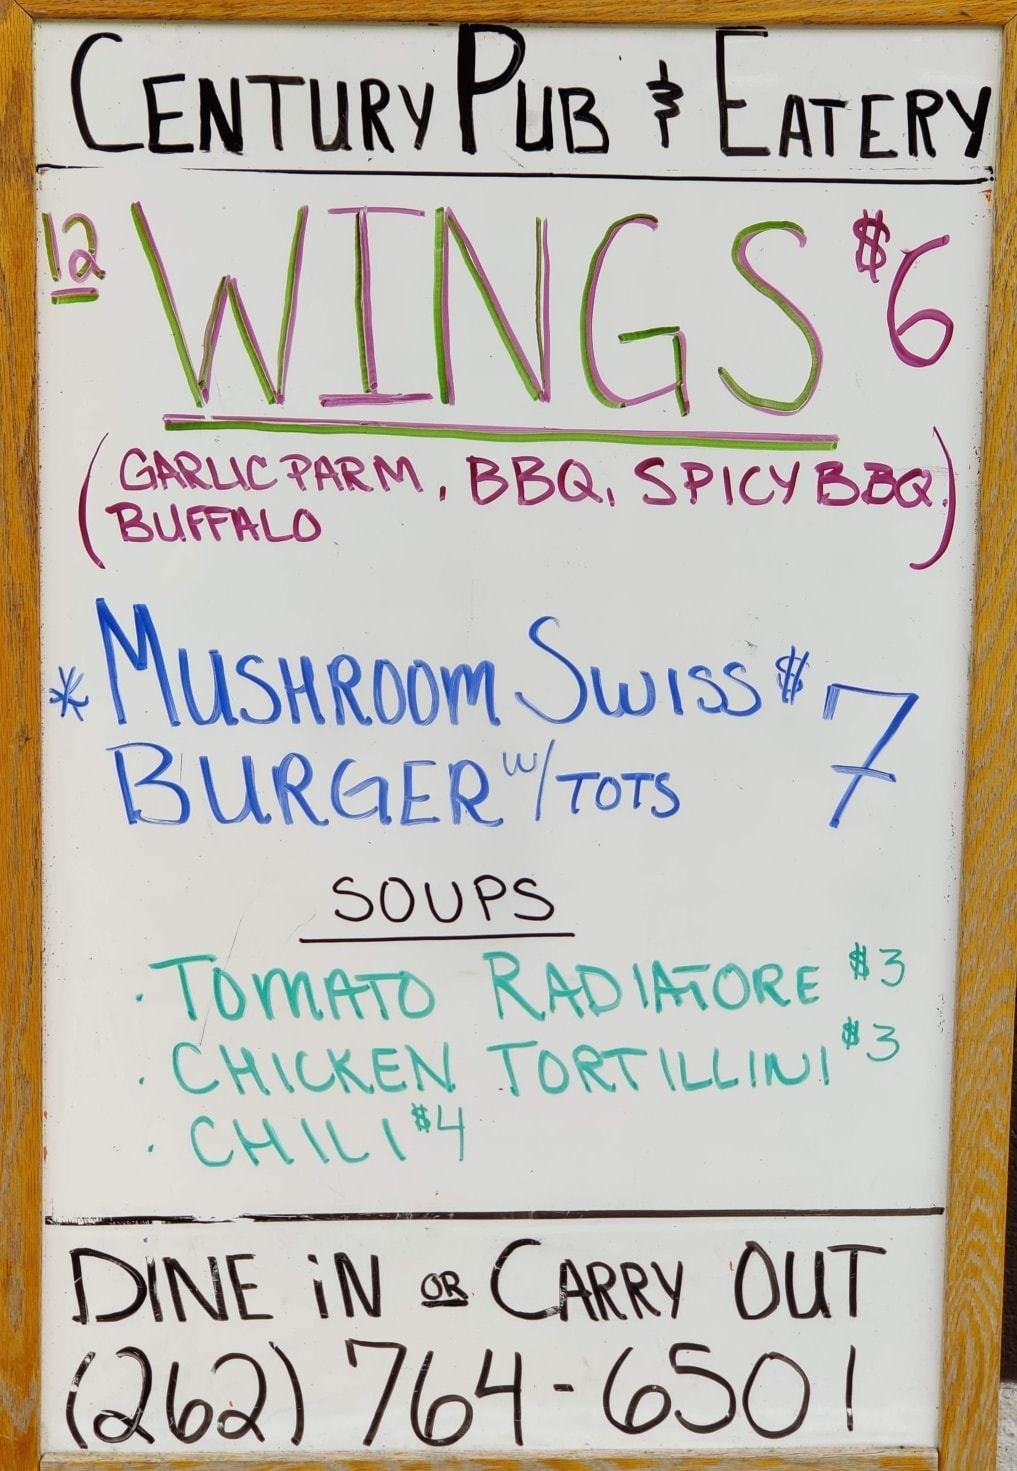 CENTURY PUB & EATERY
12 WINGS $6
(GARLIC PARM, BBQ, SPICY BBQ,
BUFFALO)
* MUSHROOM SWISS $7
BURGER W/ TOTS
SOUPS
· TOMATO RADIATORE $3
· CHICKEN TORTILLINI $3
· CHILI $4
DINE iN OR CARRY OUT
(262) 764-6501